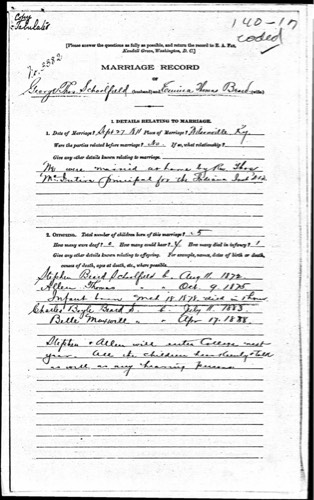 Copy
Tabulated
140-17
coded
No. 2582
[Please answer the questions as fully as possible, and return the record to E. A. Fay,
Kendall Green, Washington, D. C.]
MARRIAGE RECORD
OF
George Thos. Schoolfield (husband) and Thomas Beard (wife)
I. DETAILS RELATING TO MARRIAGE.
1. Date of Marriage? Sept 27 Place of Marriage? Ky
Were the parties related before marriage? No. If so, what relationship?
Give any other details relating to marriage.
We were married at home by Rev. Thos.
Mc principal for the
2. OFFSPRING. Total number of children born of this marriage? 5
How many were deaf? 0 How many could hear? 4 How many died in infancy? 1
Give any other details relating to offspring. For example, names, dates of birth or death,
causes of death, ages at death, etc., where possible.
Stephen Beard Schoolfield b. Aug 11. 1872
Allen Thomas " " Oct. 9. 1875
Infant born 18 1878 died in
Charles Boyle Beard S. b. July 11. 1883.
Belle Maxwell " " Apr 17. 1888.
Stephen & Allen will enter College next
year. All the children
as well as any hearing persons